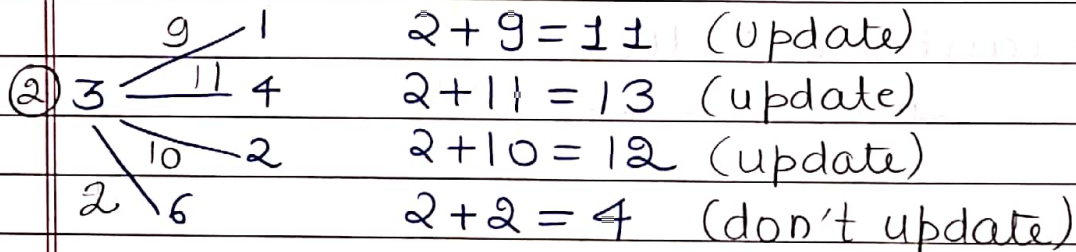 9 1 2+9=11 (update)
② 3 11 4 2+11=13 (update)
10 2 2+10=12 (update)
2 6 2+2=4 (don't update)